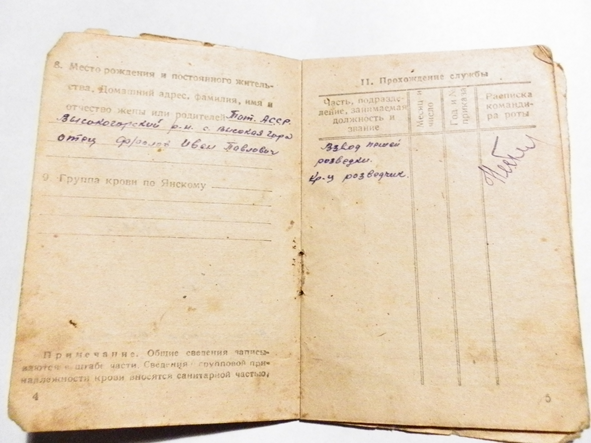 8. Место рождения и постоянного житель-
ства. Домашний адрес, фамилия, имя и
отчество жены или родителей Тат. АССР.
Высокогорский р-н. с. Высокая гора
отец Фролов Иван Павлович
9. Группа крови по Янскому
Примечание. Общие сведения записы-
ваются в штабе части. Сведения групповой при-
надлежности крови вносятся санитарной частью.
4
11. Прохождение службы
Часть, подразде-
ление, занимаемая
должность и
звание
Месяц и
число
Год и №
приказа
Расписка
команди-
ра роты
Взвод пешей
разведки.
кр-ц разведчик.
5